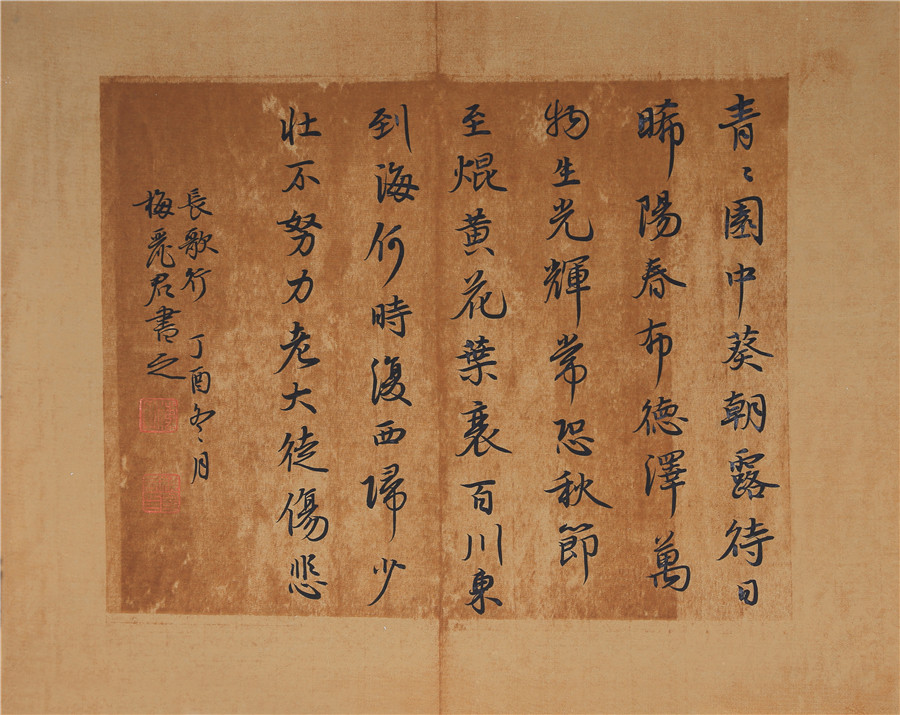 青〻園中葵朝露待日
晞陽春布德澤萬
物生光輝常恐秋節
至焜黄花葉衰百川東
到海何時復西歸少
壯不努力老大徒傷悲
長歌行 丁酉冬月
梅麗君書之